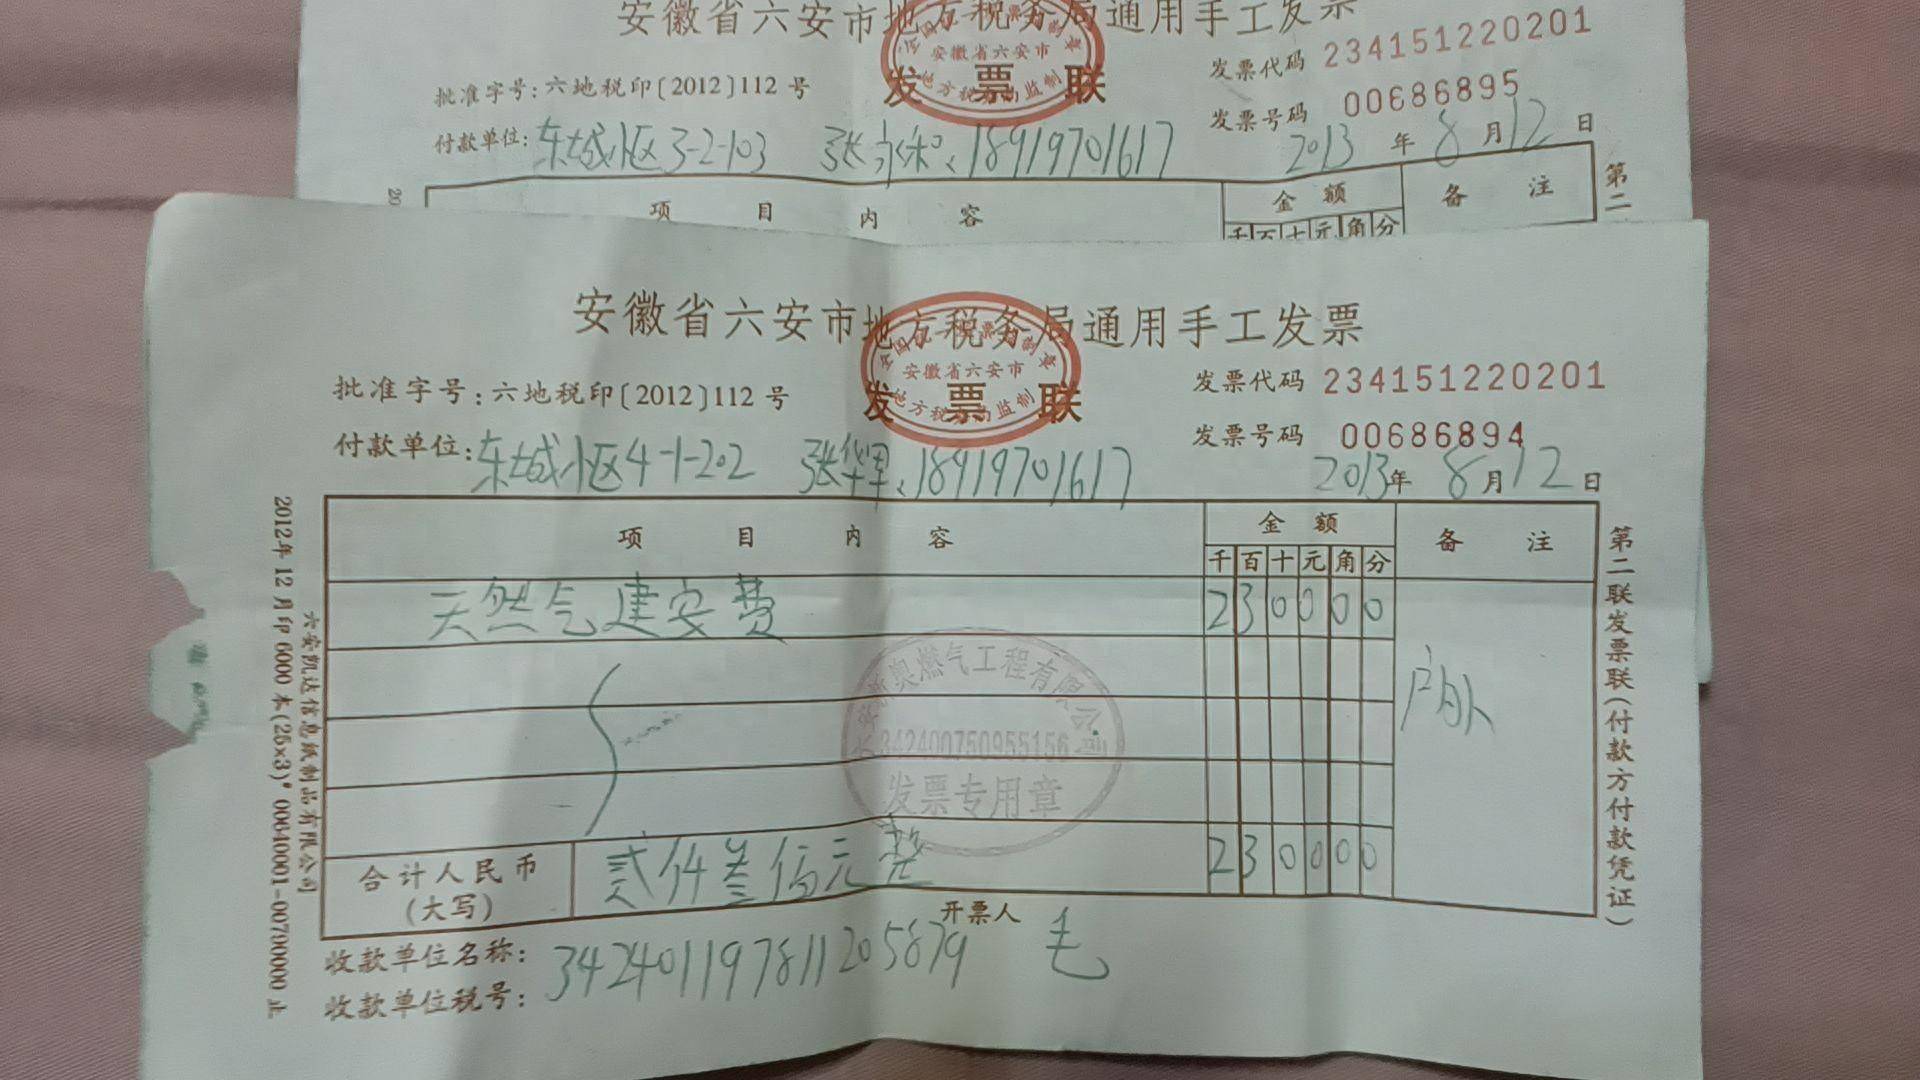 安徽省六安市地方税务局通用手工发票
全国统一发票监制章
安徽省六安市
地方税务局监制
发票联
发票代码 234151220201
批准字号：六地税印〔2012〕112 号
发票号码 00686895
付款单位：东城小区3-2-103 张永和、18919701617 2013 年 8 月 12 日
项目内容 金额 备注
千百十元角分
第二
20
安徽省六安市地方税务局通用手工发票
全国统一发票监制章
安徽省六安市
地方税务局监制
发票联
批准字号：六地税印〔2012〕112 号
发票代码 234151220201
发票号码 00686894
付款单位：东城小区4-1-202 张华军、18919701617 2013年 8 月 12 日
项目内容 金额 备注
千百十元角分
天然气建安费 230000
户外
六安新奥燃气工程有限公司
342400750955156
发票专用章
合计人民币（大写） 贰仟叁佰元整 230000
开票人 毛
收款单位名称：
342401197811205879
收款单位税号：
第二联发票联（付款方付款凭证）
六安凯达信息纸制品有限公司
2012年12月印6000本(25×3)°00640001-00790000止